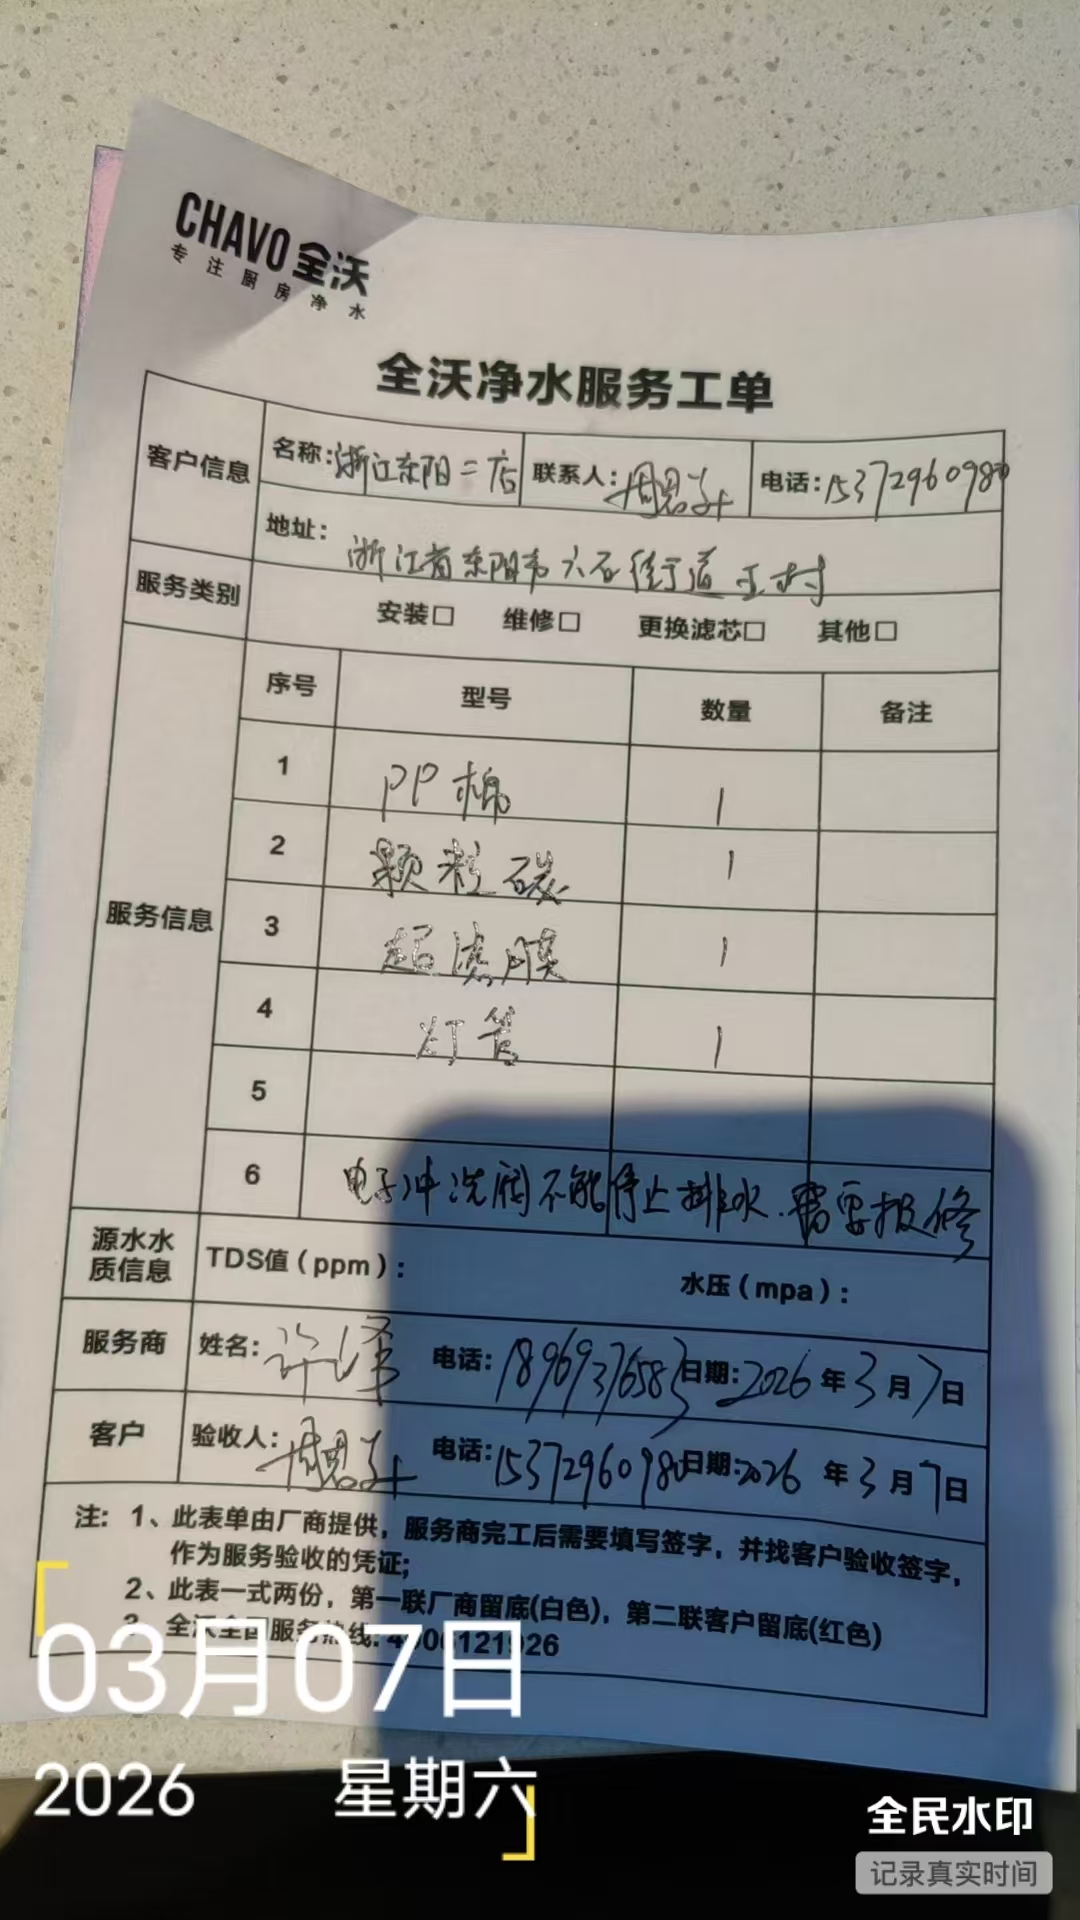 CHAVO 全沃
专注厨房净水
全沃净水服务工单
客户信息 名称:浙江东阳二店 联系人:周思 电话:15372960980
地址:浙江省东阳市六石街道王村
服务类别 安装□ 维修□ 更换滤芯□ 其他□
服务信息 序号 型号 数量 备注
1 PP棉 1
2 颗粒碳 1
3 超滤膜 1
4 灯管 1
5
6 电子冲洗阀不能停止排水.需要报修
源水水质信息 TDS值(ppm): 水压(mpa):
服务商 姓名:许泽 电话:18969376583 日期:2026年3月7日
客户 验收人:周思 电话:15372960980 日期:2026年3月7日
注: 1、此表单由厂商提供,服务商完工后需要填写签字,并找客户验收签字,
作为服务验收的凭证;
2、此表一式两份,第一联厂商留底(白色),第二联客户留底(红色)
3、全沃全国服务热线:4006121926
03月07日
2026 星期六
全民水印
记录真实时间